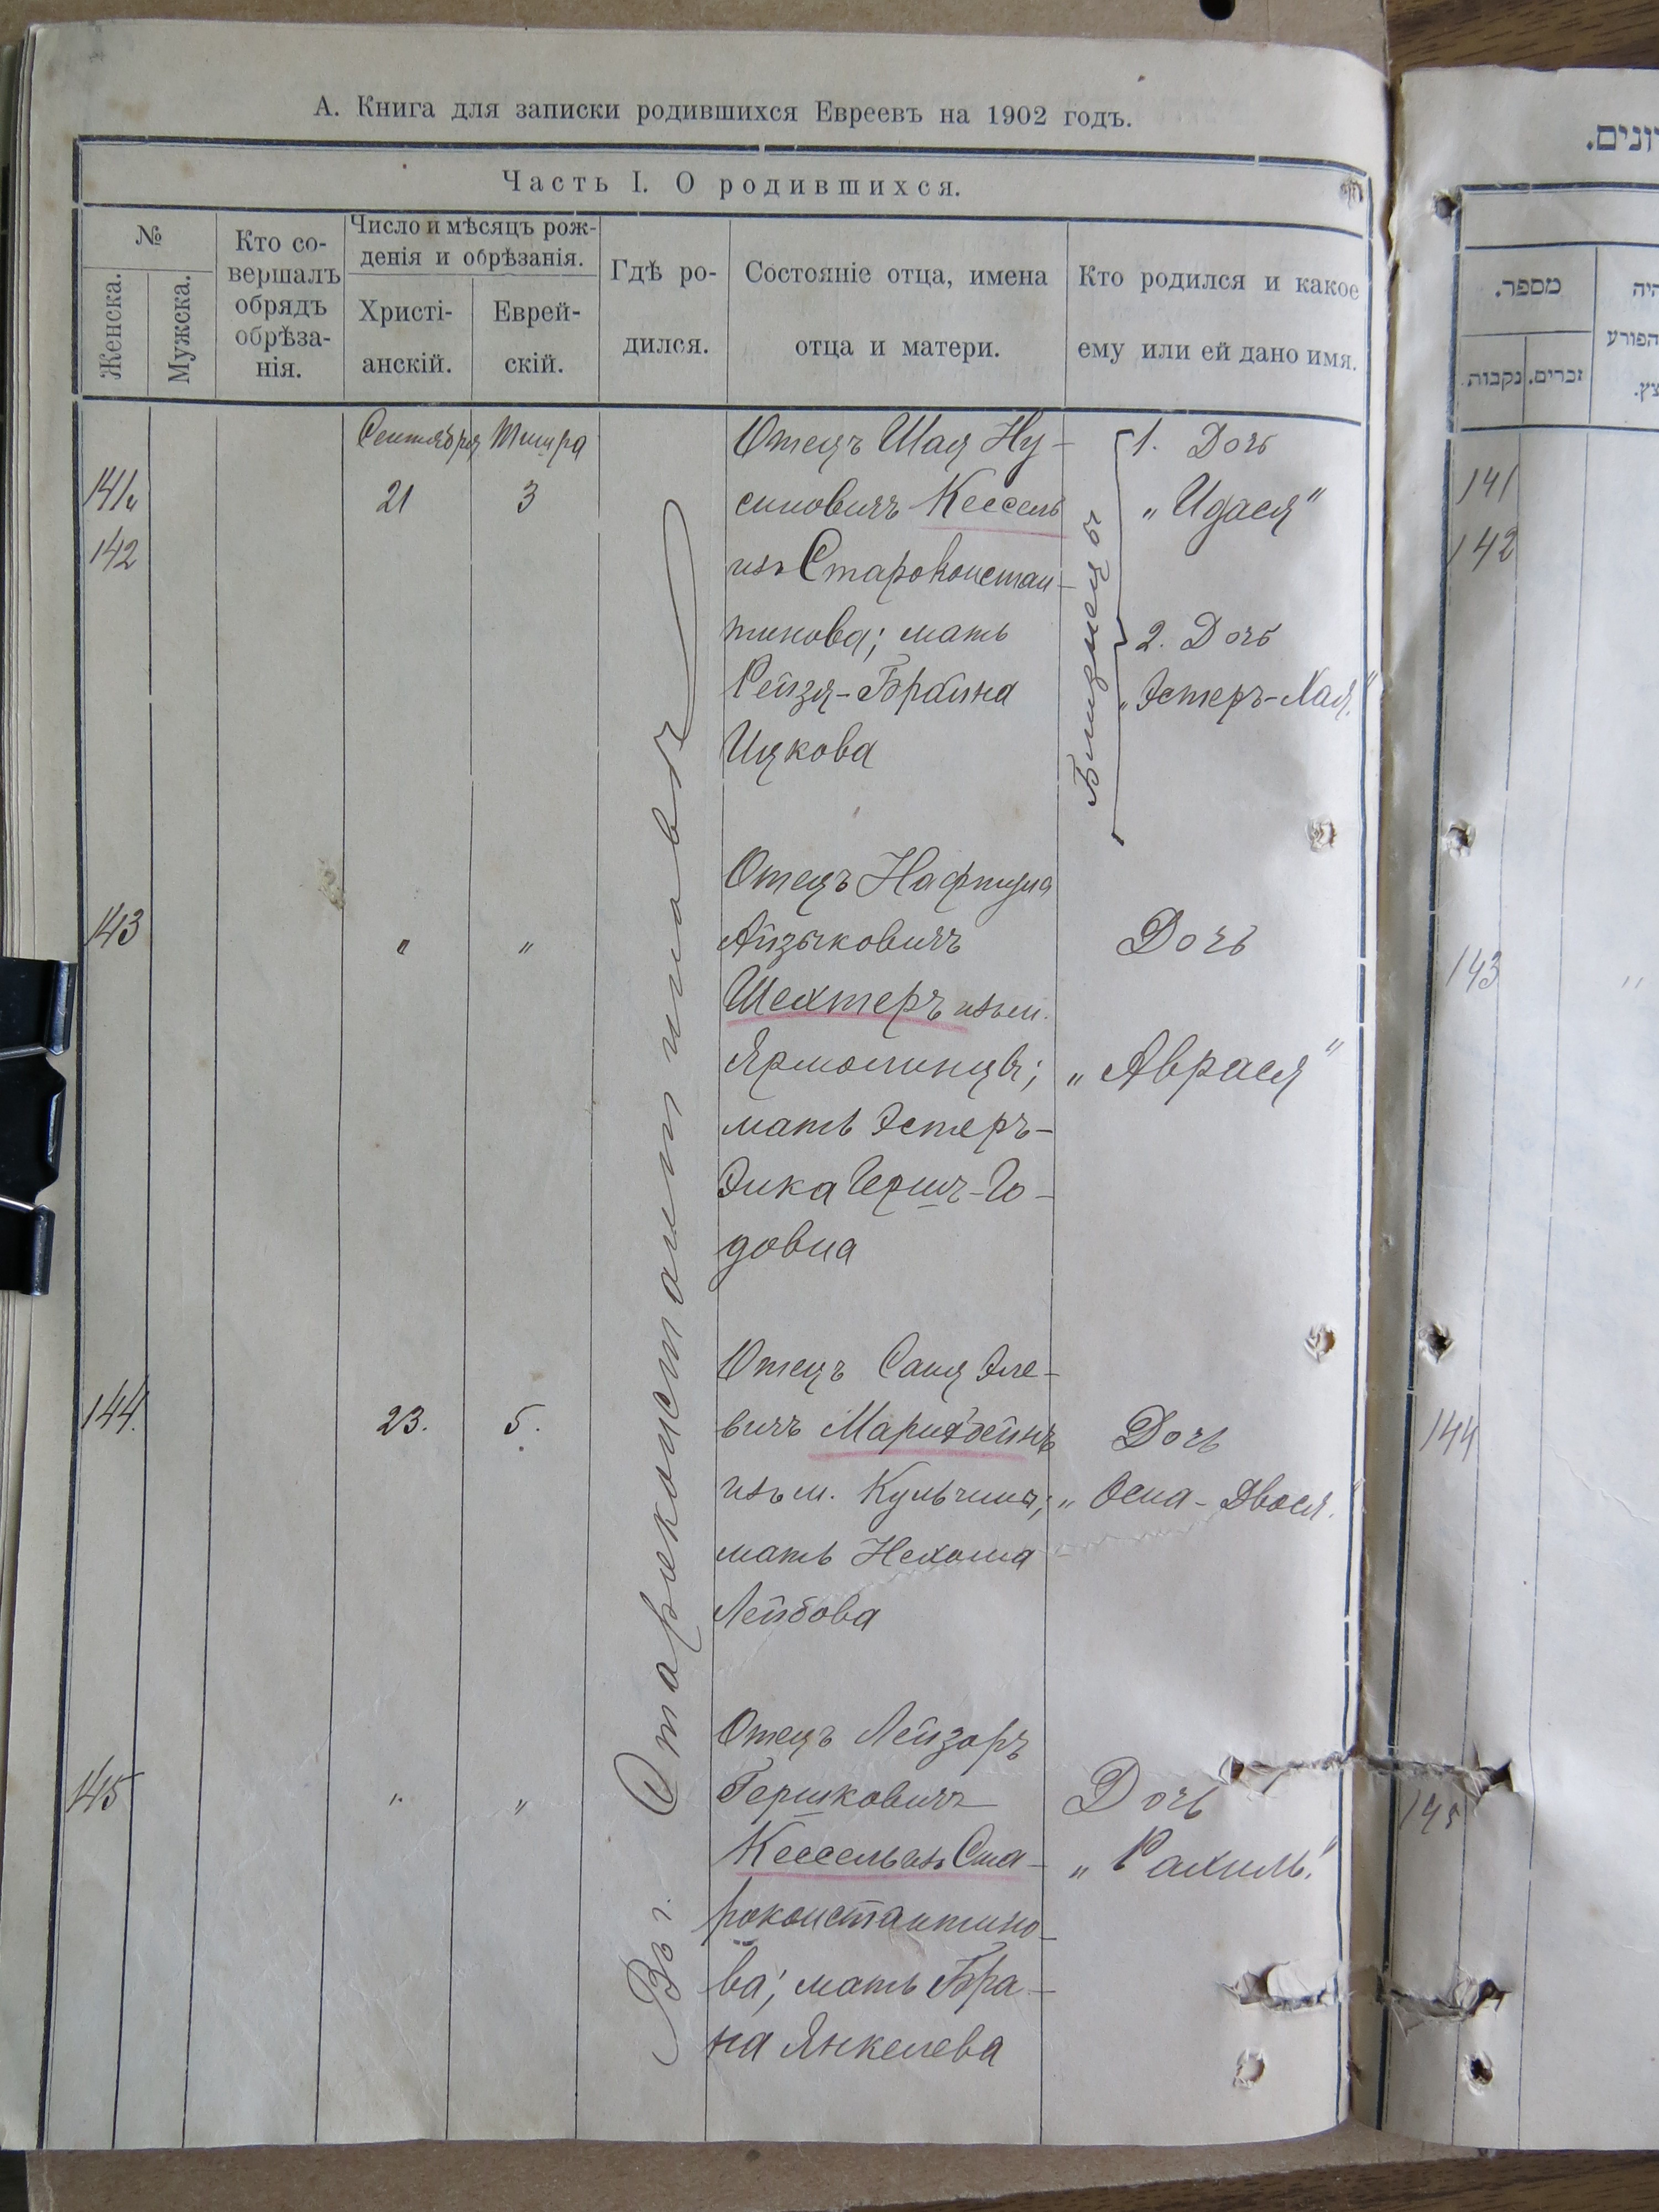 А. Книга для записки родившихся Евреевъ на 1902 годъ.
Часть I. О родившихся.
№
Женска.
Мужска.
Кто со-
вершалъ
обрядъ
обрѣза-
нія.
Число и мѣсяцъ рож-
денія и обрѣзанія.
Христі-
анскій.
Еврей-
скій.
Гдѣ ро-
дился.
Состояніе отца, имена
отца и матери.
Кто родился и какое
ему или ей дано имя.
Сентября Тишра
141 и
142
21
3
Въ г. Староконстантиновѣ
Отецъ Шая Ну-
синовичъ Кессель
изъ Староконстан-
тинова; мать
Рейзя-Брайна
Ицкова
Близнецы
1. Дочь
„Идася“
2. Дочь
„Эстеръ-Хая“
143
"
"
Отецъ Нафтула
Айзыковичъ
Шехтеръ изъ м.
Ярмолинцъ;
мать Эстеръ-
Элка Герш-Ю-
довна
Дочь
„Аврася“
144.
23.
5.
Отецъ Саня Эле-
вичъ
изъ м. Кульчина;
мать Нехама
Лейбова
Дочь
„Осна-Двося“
145
"
"
Отецъ Лейзоръ
Гершковичъ
Кессель изъ Ста-
роконстантино-
ва; мать Бра-
на Янкелева
Дочь
„Рахиль“
מספר.
נקבות
זכרים.
הפורע
141
142
143
"
144
145